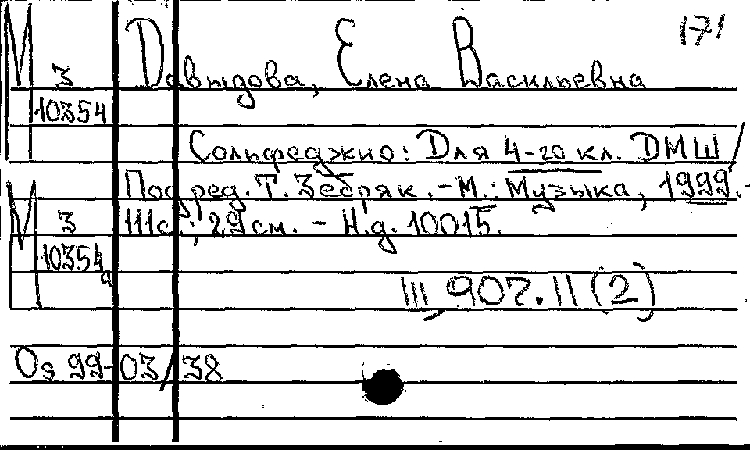 171
М
З
10354
Давыдова, Елена Васильевна
Сольфеджио: Для 4-го кл. ДМШ /
Под ред. Т. Зебряк. - М.: Музыка, 1999. -
111с.; 29 см. - Н.д. 10015.
М
З
10354а
III, 907.11 (2)
Os 99-03/38